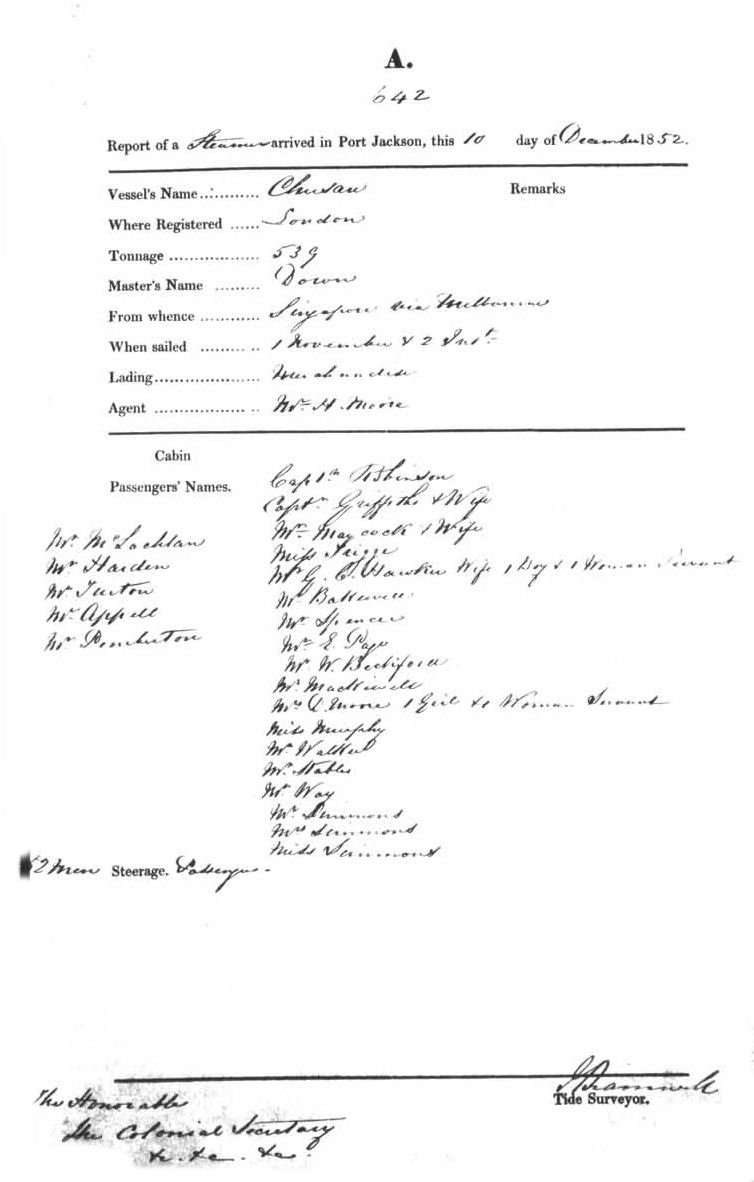 A.
642
Report of a Steamer arrived in Port Jackson, this 10 day of December 1852.
Vessel's Name ........... Chusan Remarks
Where Registered ...... London
Tonnage .................. 539
Master's Name ......... Down
From whence ............ Singapore via Melbourne
When sailed ......... .. 1 November & 2 Inst.
Lading..................... Merchandise
Agent ................. .. Mr. H. Moore
Cabin
Passengers' Names.
Captn Robinson
Captn Griffiths & Wife
Mr Maycock & Wife
Miss Trigge
Mr G. C. Hawker Wife 1 Boy & 1 Woman Servant
Mr Bakewell
Mr Spencer
Mr E. Page
Mr. W.
Mr. Mackiwell
Mrs Moore 1 Girl & 1 Woman Servant
Miss Murphy
Mr Walker
Mr. Stables
Mr. Way
Mr. Simmons
Mrs Simmons
Miss Simmons
Mr. McLachlan
Mr Harden
Mr Turton
Mr. Appell
Mr Pemberton
2 men Steerage. Passengers.
J Bramwell
Tide Surveyor.
The Honorable
The Colonial Secretary
&c. &c. &c.